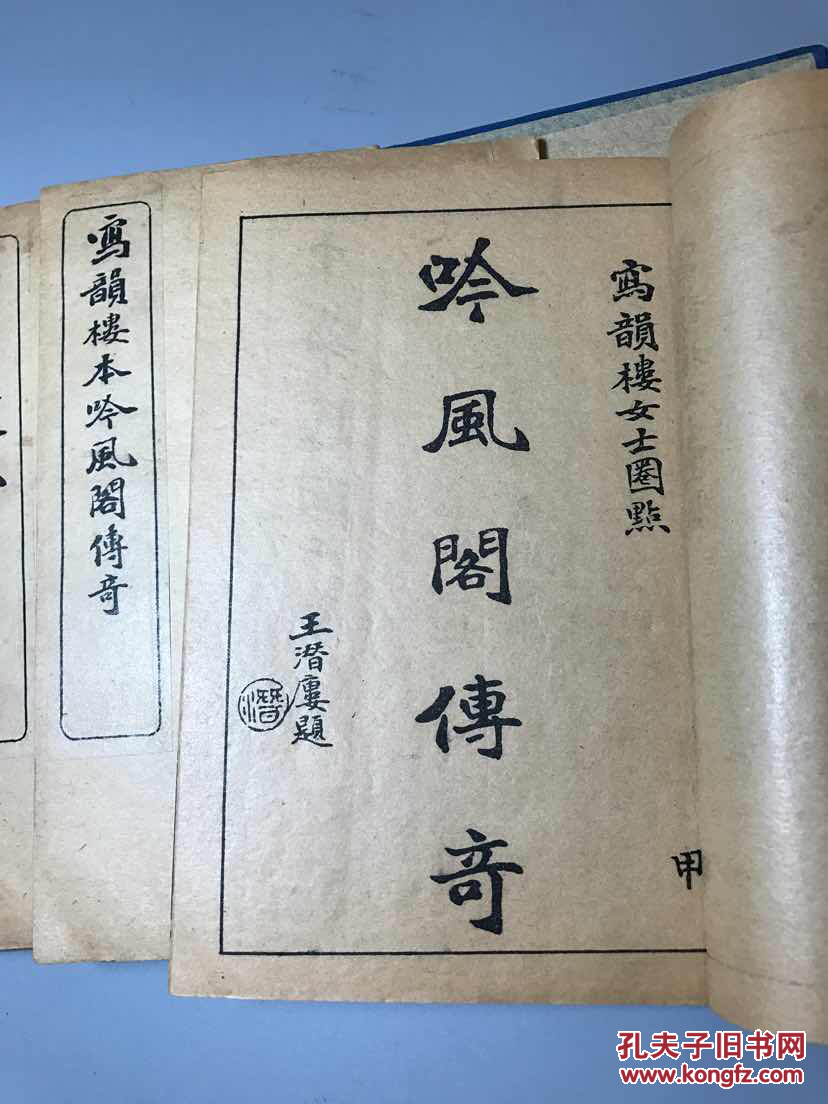 寫韻樓女士圈點
吟風閣傳奇
王潛廔題
潛
甲
寫韻樓本吟風閣傳奇
孔夫子旧书网
www.kongfz.com